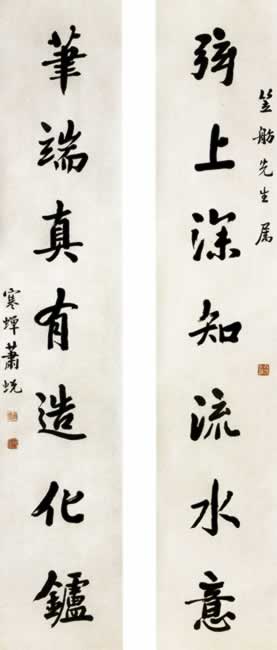 笠舫先生属
弦上深知流水意
筆端真有造化鑪
寒蟬蕭蛻